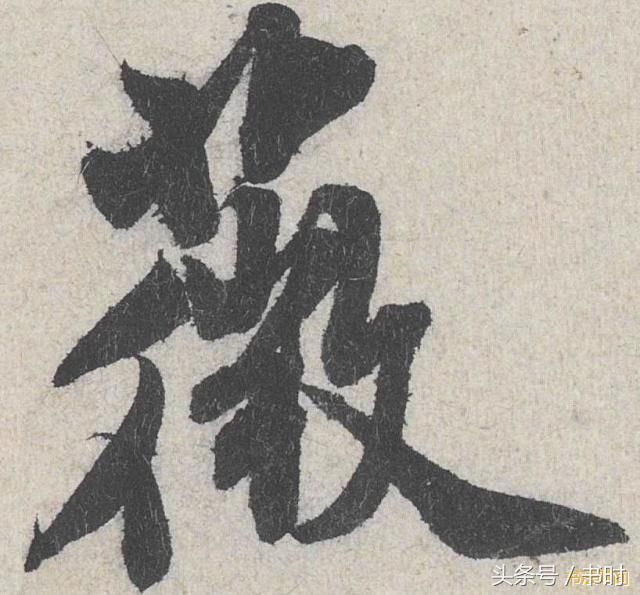 薇
头条号 / 书时